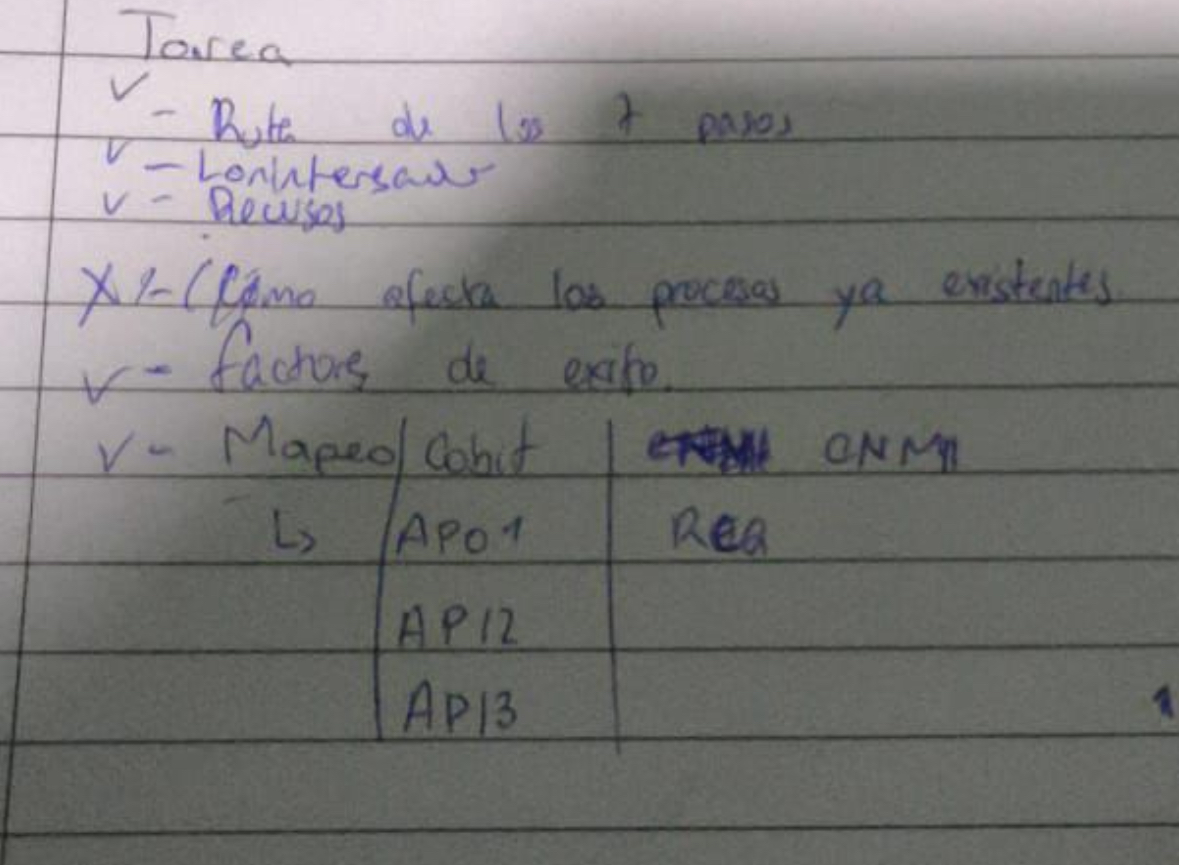 Tarea
✓ - Ruta de los 7 pasos
✓ -
✓ - Recursos
X - Cómo afecta los procesos ya existentes.
✓ - factores de exito.
✓ - Mapeo | Cobit | CNMM
↳ | APO1 | REQ
AP12
AP13